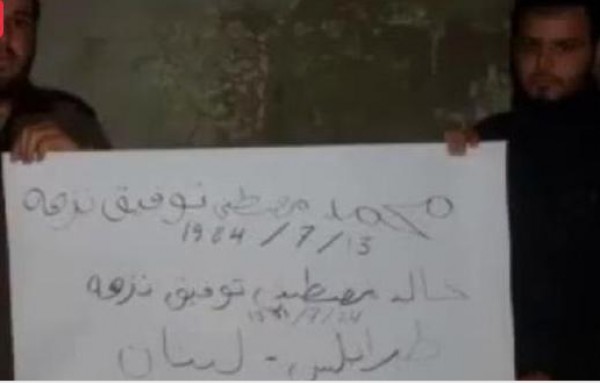 محمد مصطفى توفيق نزهه
1984/7/13
خالد مصطفى توفيق نزهه
طرابلس - لبنان